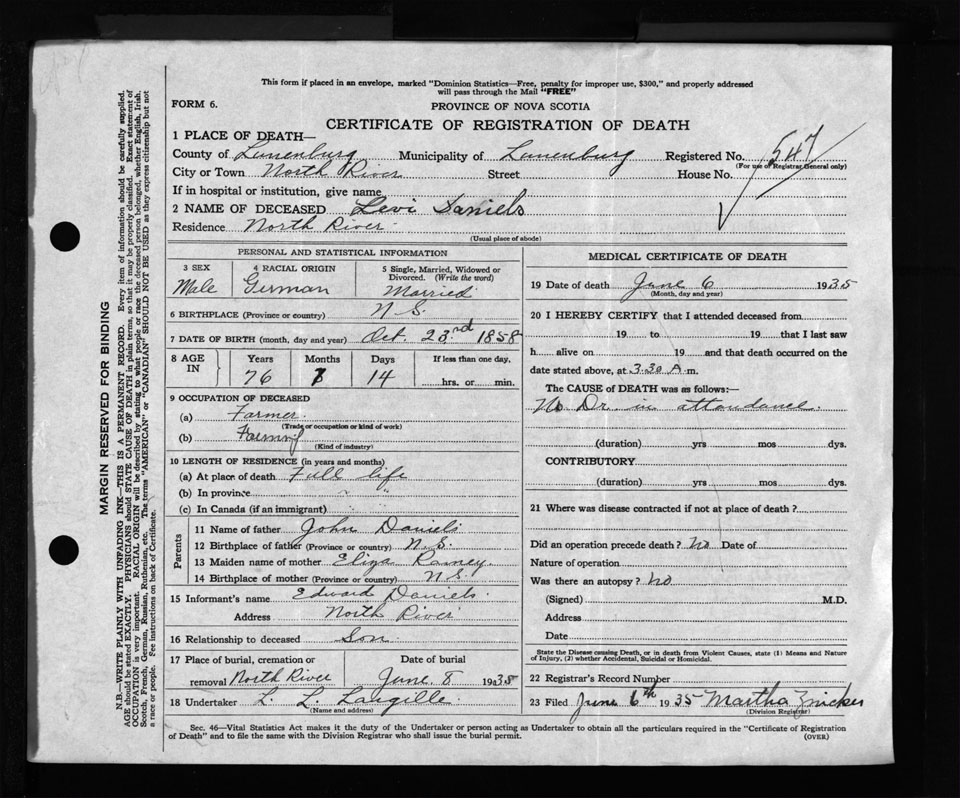 This form if placed in an envelope, marked "Dominion Statistics—Free, penalty for improper use, $300," and properly addressed
will pass through the Mail "FREE"
FORM 6.
PROVINCE OF NOVA SCOTIA
CERTIFICATE OF REGISTRATION OF DEATH
1 PLACE OF DEATH—
County of Lunenburg Municipality of Lunenburg Registered No. 547
(For use of Registrar General only)
City or Town North River Street House No.
If in hospital or institution, give name
2 NAME OF DECEASED Levi Daniels
Residence North River
(Usual place of abode)
PERSONAL AND STATISTICAL INFORMATION
3 SEX 4 RACIAL ORIGIN 5 Single, Married, Widowed or
Divorced. (Write the word)
Male German Married
6 BIRTHPLACE (Province or country) N S.
7 DATE OF BIRTH (month, day and year) Oct. 23rd 1858
8 AGE IN Years Months Days If less than one day,
76 7 14 hrs. or min.
9 OCCUPATION OF DECEASED
(a) Farmer
(Trade or occupation or kind of work)
(b) Farming
(Kind of industry)
10 LENGTH OF RESIDENCE (in years and months)
(a) At place of death Full life
(b) In province " "
(c) In Canada (if an immigrant) " "
Parents
11 Name of father John Daniels
12 Birthplace of father (Province or country) N S.
13 Maiden name of mother Eliza Ramey
14 Birthplace of mother (Province or country) N S.
15 Informant's name Edward Daniels
Address North River
16 Relationship to deceased Son
17 Place of burial, cremation or Date of burial
removal North River June 8 1935
18 Undertaker L. L. Langille
(Name and address)
MEDICAL CERTIFICATE OF DEATH
19 Date of death June 6 1935
(Month, day and year)
20 I HEREBY CERTIFY that I attended deceased from
19 to 19 that I last saw
h alive on 19 and that death occurred on the
date stated above, at 3.30 A m.
The CAUSE OF DEATH was as follows:
No Dr. in attendance.
(duration) yrs mos dys.
CONTRIBUTORY
(duration) yrs mos dys.
21 Where was disease contracted if not at place of death?
Did an operation precede death? No Date of
Nature of operation
Was there an autopsy? No
(Signed) M.D.
Address
Date
State the Disease causing Death, or in death from Violent Causes, state (1) Means and Nature
of Injury, (2) whether Accidental, Suicidal or Homicidal.
22 Registrar's Record Number
23 Filed June 6th 1935 Martha Zwicker
(Division Registrar)
Sec. 46—Vital Statistics Act makes it the duty of the Undertaker or person acting as Undertaker to obtain all the particulars required in the "Certificate of Registration
of Death" and to file the same with the Division Registrar who shall issue the burial permit.
(OVER)
MARGIN RESERVED FOR BINDING
N.B.—WRITE PLAINLY WITH UNFADING INK—THIS IS A PERMANENT RECORD. Every item of information should be carefully supplied.
AGE should be stated EXACTLY. PHYSICIANS should STATE CAUSE OF DEATH in plain terms, so that it may be properly classified. Exact statement of
OCCUPATION is very important. RACIAL ORIGIN will be described by stating to what people or race the deceased person belonged, whether English, Irish,
Scotch, French, German, Russian, Ruthenian, etc. The terms "AMERICAN" or "CANADIAN" SHOULD NOT BE USED as they express citizenship but not
a race or people. See instructions on back of Certificate.